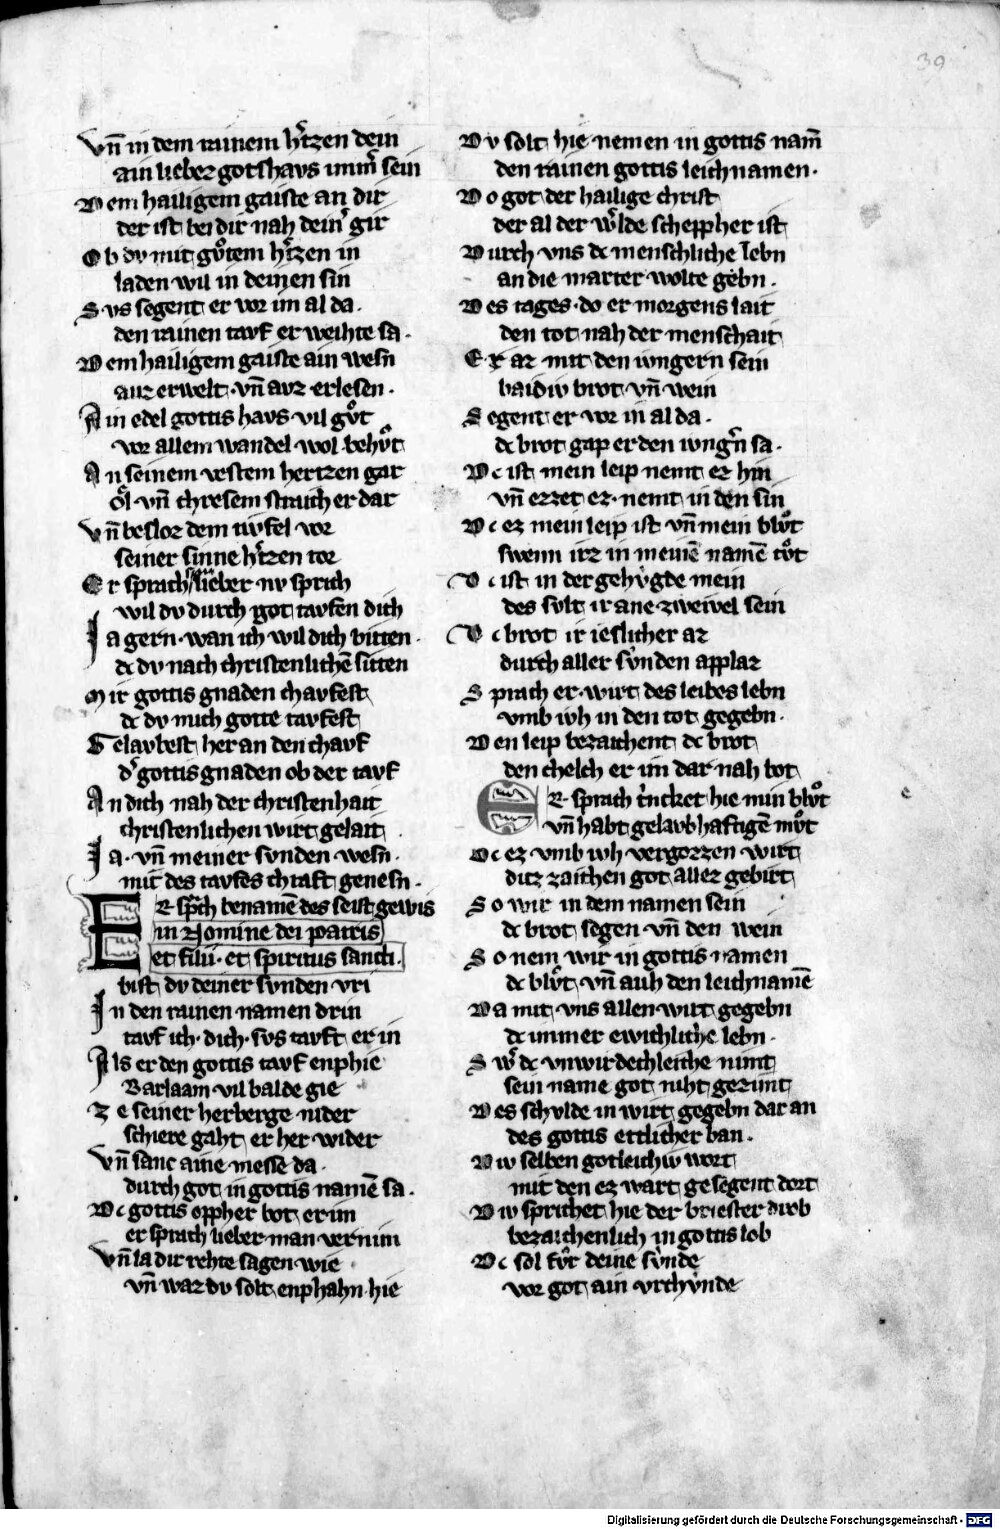 39
Vn̄ in dem rainem hˀtzen dein
ain lieber gotshavs immˀ sein
Dem hailigem gaiste an dir
der ist bei dir nah deinˀ gir
Ob dv mit gvͦtem hˀtzen in
laden wil in deinen sin
Svs segent er vor im al da.
den rainen tavf er weihte sa.
Dem hailigem gaiste ain wesn
auz erwelt. vn̄ avz erlesen.
Ain edel gottis havs vil gvͦt
vor allem wandel wol behvͦt
An seinem vestem hertzen gar
oͤl vn̄ chresem straich er dar
Vn̄ besloz dem tivfel vor
seiner sinne hˀtzen tor
Er sprach lieber nv sprich
wil dv durch got tavfen dich
Ja gern. wan ich wil dich bitten.
dc dv nach christenlichē sitten
Mir gottis gnaden chavfest
dc dv mich gotte tavfest
Gelavbest her an den chavf
dˀ gottis gnaden ob der tavf
An dich nah der christenhait
christenlichen wirt gelait
Ja. vn̄ meiner svnden wesn.
mit des tavfes chraft genesn.
ER sprach benamē des seist gewis
in Nomine dei patris
et filii. et spiritus sancti.
bist dv deiner svnden vri
In den rainen namen drin
tavf ich. dich. svs tavft er in
Als er den gottis tavf enphie
Barlaam vil balde gie
Ze seiner herberge nider
schiere gaht er her wider
Vn̄ sanc aine messe da.
durch got in gottis namē sa.
Dc gottis oppher bot er im
er sprach lieber man vernim
Vn̄ la dir rehte sagen wie
vn̄ waz dv solt enphahn hie
Dv solt hie nemen in gottis nam̄
den rainen gottis leichnamen.
Do got der hailige christ
der al der wˀlde schepher ist
Durch vns dc menschliche lebn
an die marter wolte gebn.
Des tages. do er morgens lait
den tot nah der menschait
Er az mit den ivngern sein
baidiv brot vn̄ wein
Segent er vor in al da.
dc brot gap er den ivngˀn sa.
Dc ist mein leip nemt ez hin
vn̄ ezzet ez. nemt in den sin
Dc ez mein leip ist vn̄ mein blvͦt
swenn irz in meinē namē tvͦt
Dc ist in der gehvgde mein
des svlt ir ane zweivel sein
Dc brot ir ieslicher az
durch aller svnden applaz
Sprach er. wirt des leibes lebn
vmb ivh in den tot gegebn.
Den leip bezaichent dc brot
den chelch er im dar nah bot
ER sprach trincket hie min blvͦt
vn̄ habt gelavbhaftigē mvͦt
Dc ez vmb ivh vergozzen wirt
ditz zaichen got allez gebirt
So wir in dem namen sein
dc brot segen vn̄ den wein
So nem wir in gottis namen
dc blvͦt vn̄ auh den leichnamē
Da mit vns allen wirt gegebn
dc immer ewichliche lebn.
Swˀ dc vnwirdechleiche nimt
sein name got niht gezimt
Des schvlde in wirt gegebn dar an
des gottis ettlicher ban.
Div selben gotleichiv wort
mit den ez wart gesegent dort
Div sprichet hie der briester drob
bezaichenlich in gottis lob
Dc sol fvͤr deine svnde
vor got ain vrchvnde
Digitalisierung gefördert durch die Deutsche Forschungsgemeinschaft - DFG